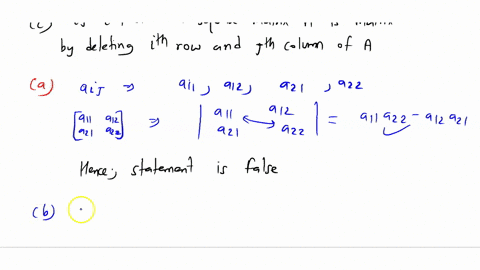 by deleting iᵗʰ row and jᵗʰ column of A
(a) aij ⇒ a11, a12, a21, a22
[a11 a12 a21 a22] ⇒ |a11 a12 a21 a22| = a11 a22 - a12 a21
Hence; statement is false
(b)